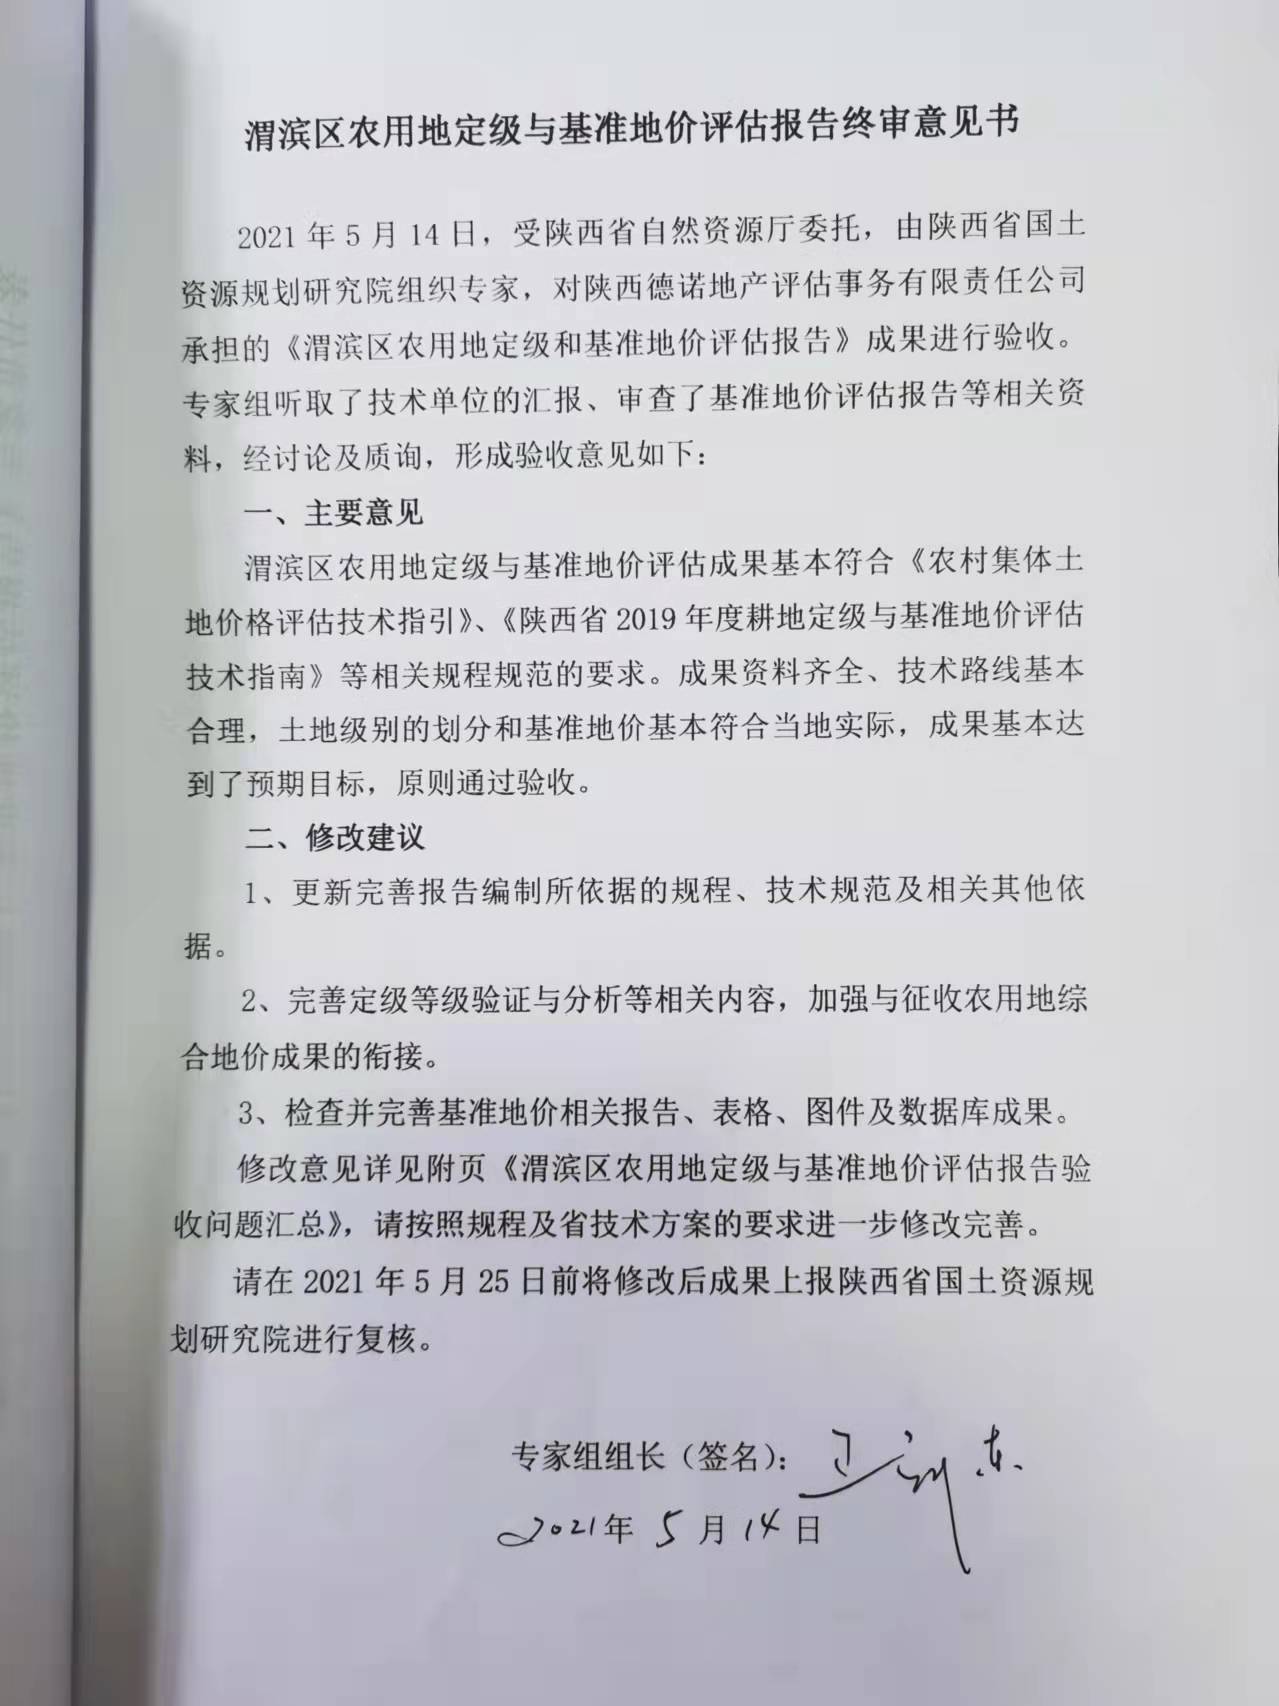 渭滨区农用地定级与基准地价评估报告终审意见书
2021年5月14日，受陕西省自然资源厅委托，由陕西省国土
资源规划研究院组织专家，对陕西德诺地产评估事务有限责任公司
承担的《渭滨区农用地定级和基准地价评估报告》成果进行验收。
专家组听取了技术单位的汇报、审查了基准地价评估报告等相关资
料，经讨论及质询，形成验收意见如下：
一、主要意见
渭滨区农用地定级与基准地价评估成果基本符合《农村集体土
地价格评估技术指引》、《陕西省2019年度耕地定级与基准地价评估
技术指南》等相关规程规范的要求。成果资料齐全、技术路线基本
合理，土地级别的划分和基准地价基本符合当地实际，成果基本达
到了预期目标，原则通过验收。
二、修改建议
1、更新完善报告编制所依据的规程、技术规范及相关其他依
据。
2、完善定级等级验证与分析等相关内容，加强与征收农用地综
合地价成果的衔接。
3、检查并完善基准地价相关报告、表格、图件及数据库成果。
修改意见详见附页《渭滨区农用地定级与基准地价评估报告验
收问题汇总》，请按照规程及省技术方案的要求进一步修改完善。
请在2021年5月25日前将修改后成果上报陕西省国土资源规
划研究院进行复核。
专家组组长（签名）：
2021年5月14日